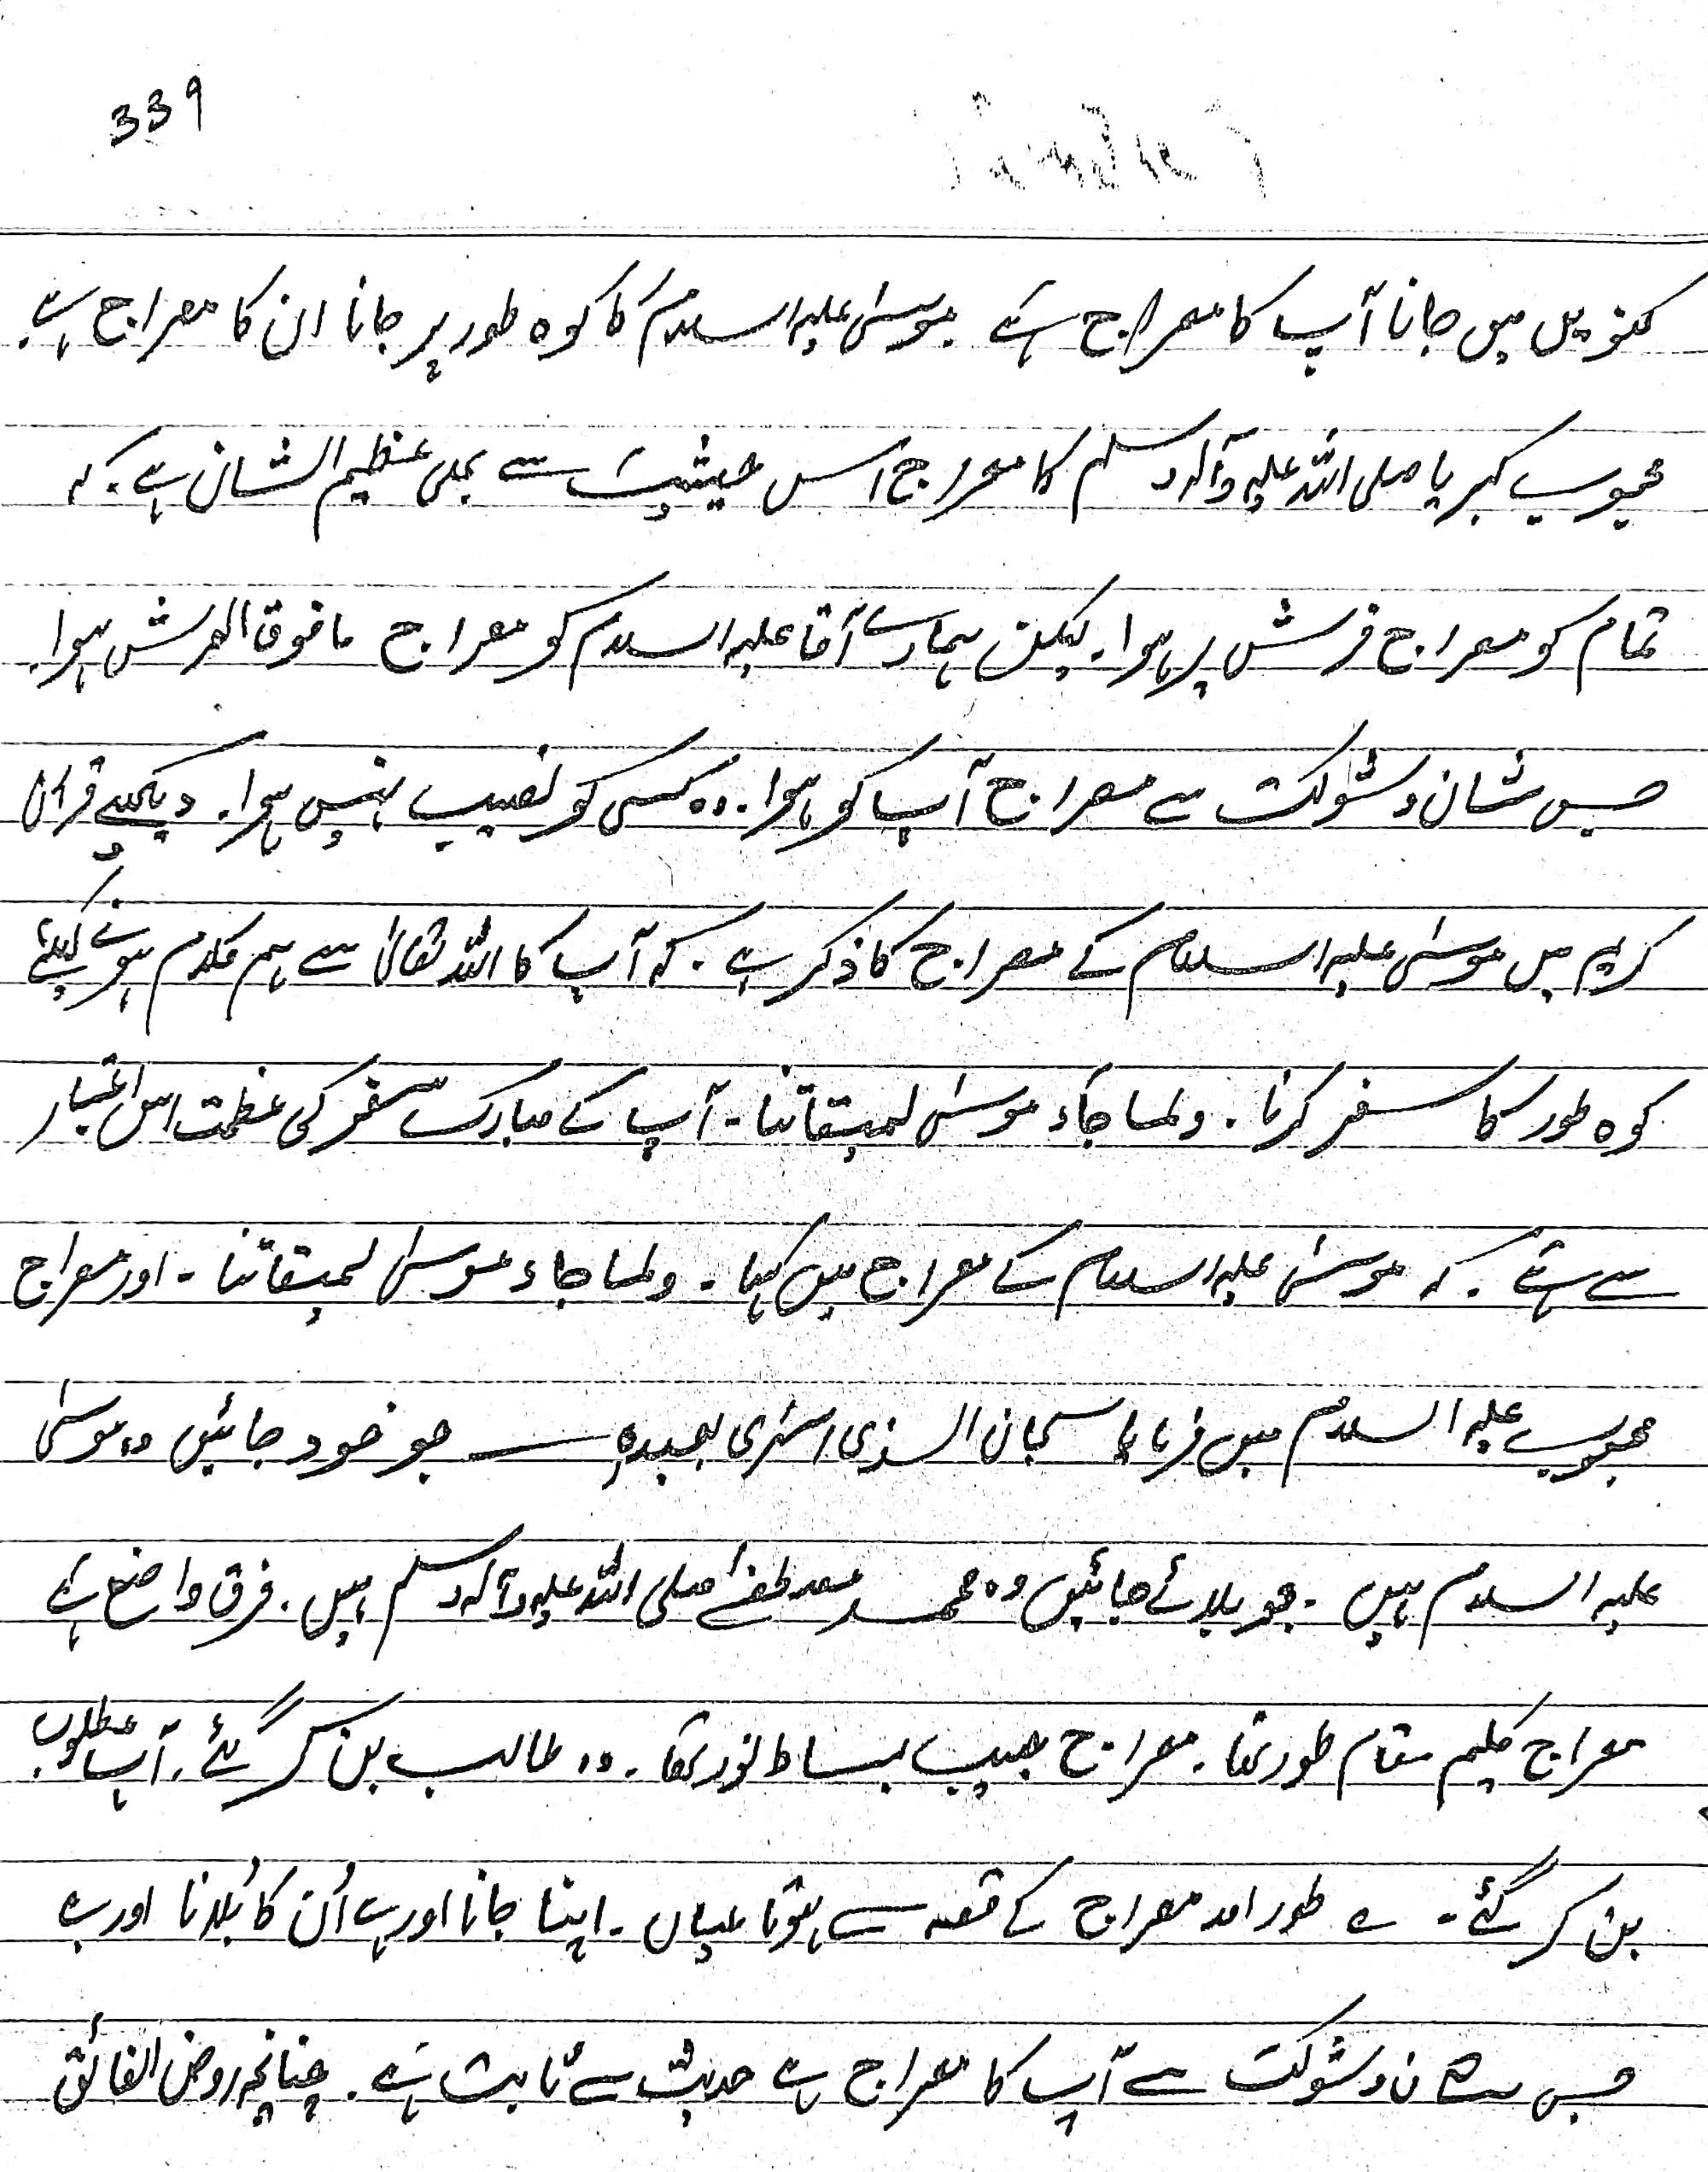 339
کنویں میں جانا آپ کا معراج ہے۔ موسیٰ علیہ السلام کا کوہ طور پر جانا ان کا معراج ہے۔
محبوب کبریا صلی اللہ علیہ وآلہ وسلم کا معراج اس حیثیت سے بھی عظیم الشان ہے۔ کہ
تمام کو معراج فرش پر ہوا۔ لیکن ہمارے آقا علیہ السلام کو معراج مافوق العرش ہوا۔
جس شان و شوکت سے معراج آپ کو ہوا۔ وہ کسی کو نصیب نہیں ہوا۔ دیکھیے قرآن
کریم میں موسیٰ علیہ السلام کے معراج کا ذکر ہے۔ کہ آپ کا اللہ تعالیٰ سے ہم کلام ہونے کیلئے
کوہ طور کا سفر کرنا۔ ولما جآء موسیٰ لمیقاتنا۔ آپ کے مبارک سفر کی عظمت اس اعتبار
سے ہے۔ کہ موسیٰ علیہ السلام کے معراج میں کہا۔ ولما جاء موسیٰ لمیقاتنا۔ اور معراج
محبوب علیہ السلام میں فرمایا سبحان الذی اسرٰی بعبدہٖ — جو خود جائیں وہ موسیٰ
علیہ السلام ہیں۔ جو بلائے جائیں وہ محمد مصطفےٰ صلی اللہ علیہ وآلہ وسلم ہیں۔ فرق واضح ہے
معراج کلیم مقام طور تھا۔ معراج حبیب بساط نور تھا۔ وہ طالب بن کر گئے۔ آپ مطلوب
بن کر گئے۔ ؎ طور اور معراج کے قصہ سے ہوتا عیاں۔ اپنا جانا اور ہے اُن کا بُلانا اور ہے
جس شان و شوکت سے آپ کا معراج ہے حدیث سے ثابت ہے۔ چنانچہ روض الفائق